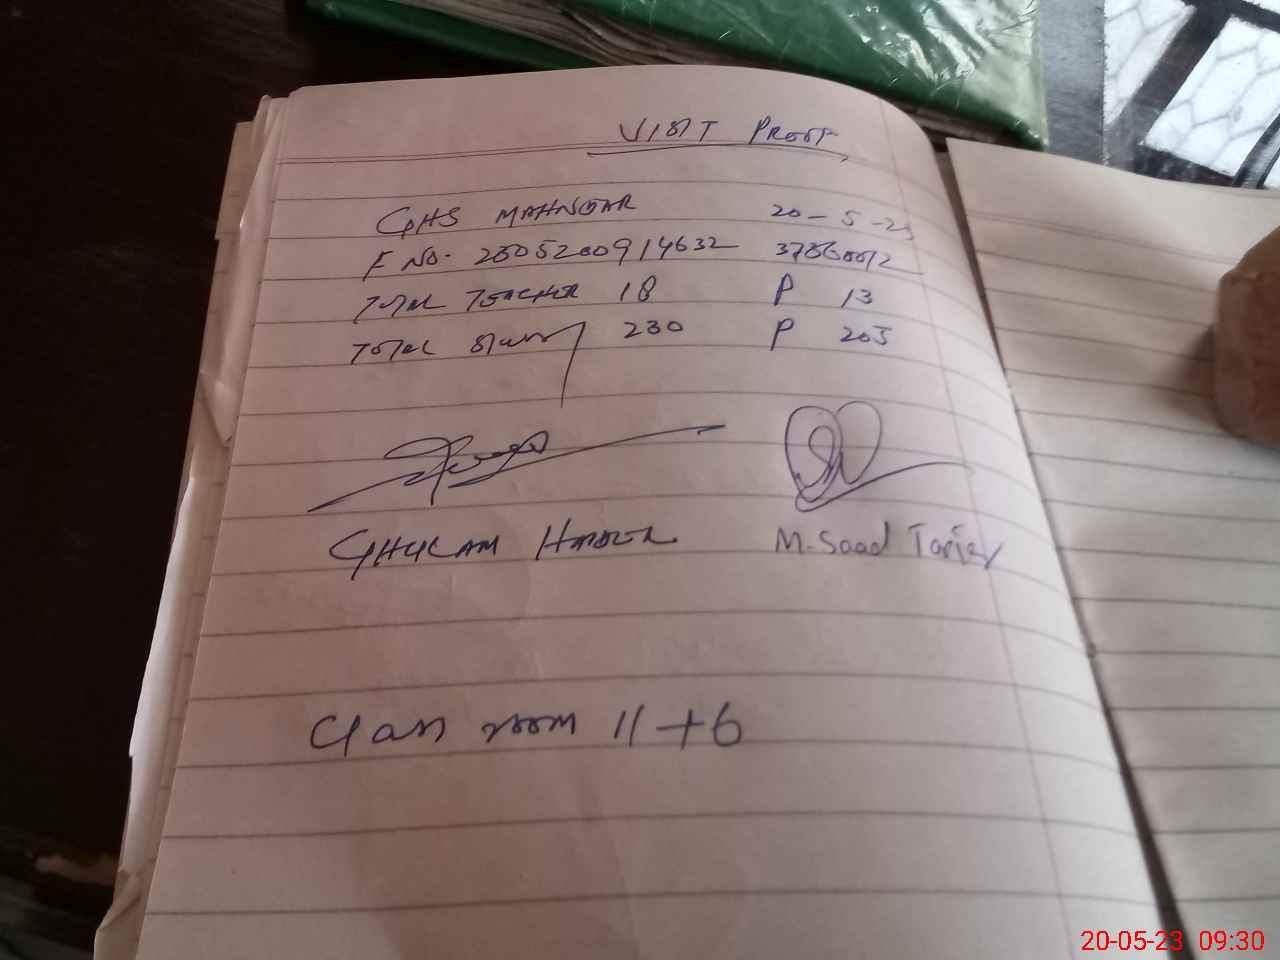 VISIT PROOF
GHS MAHNGAR 20-5-23
F NO. 2005200914632 37860012
TOTAL TEACHER 18 P 13
TOTAL 230 P 205
GHULAM HAIDER M. Saad Tariq
Class room 11+6
20-05-23 09:30